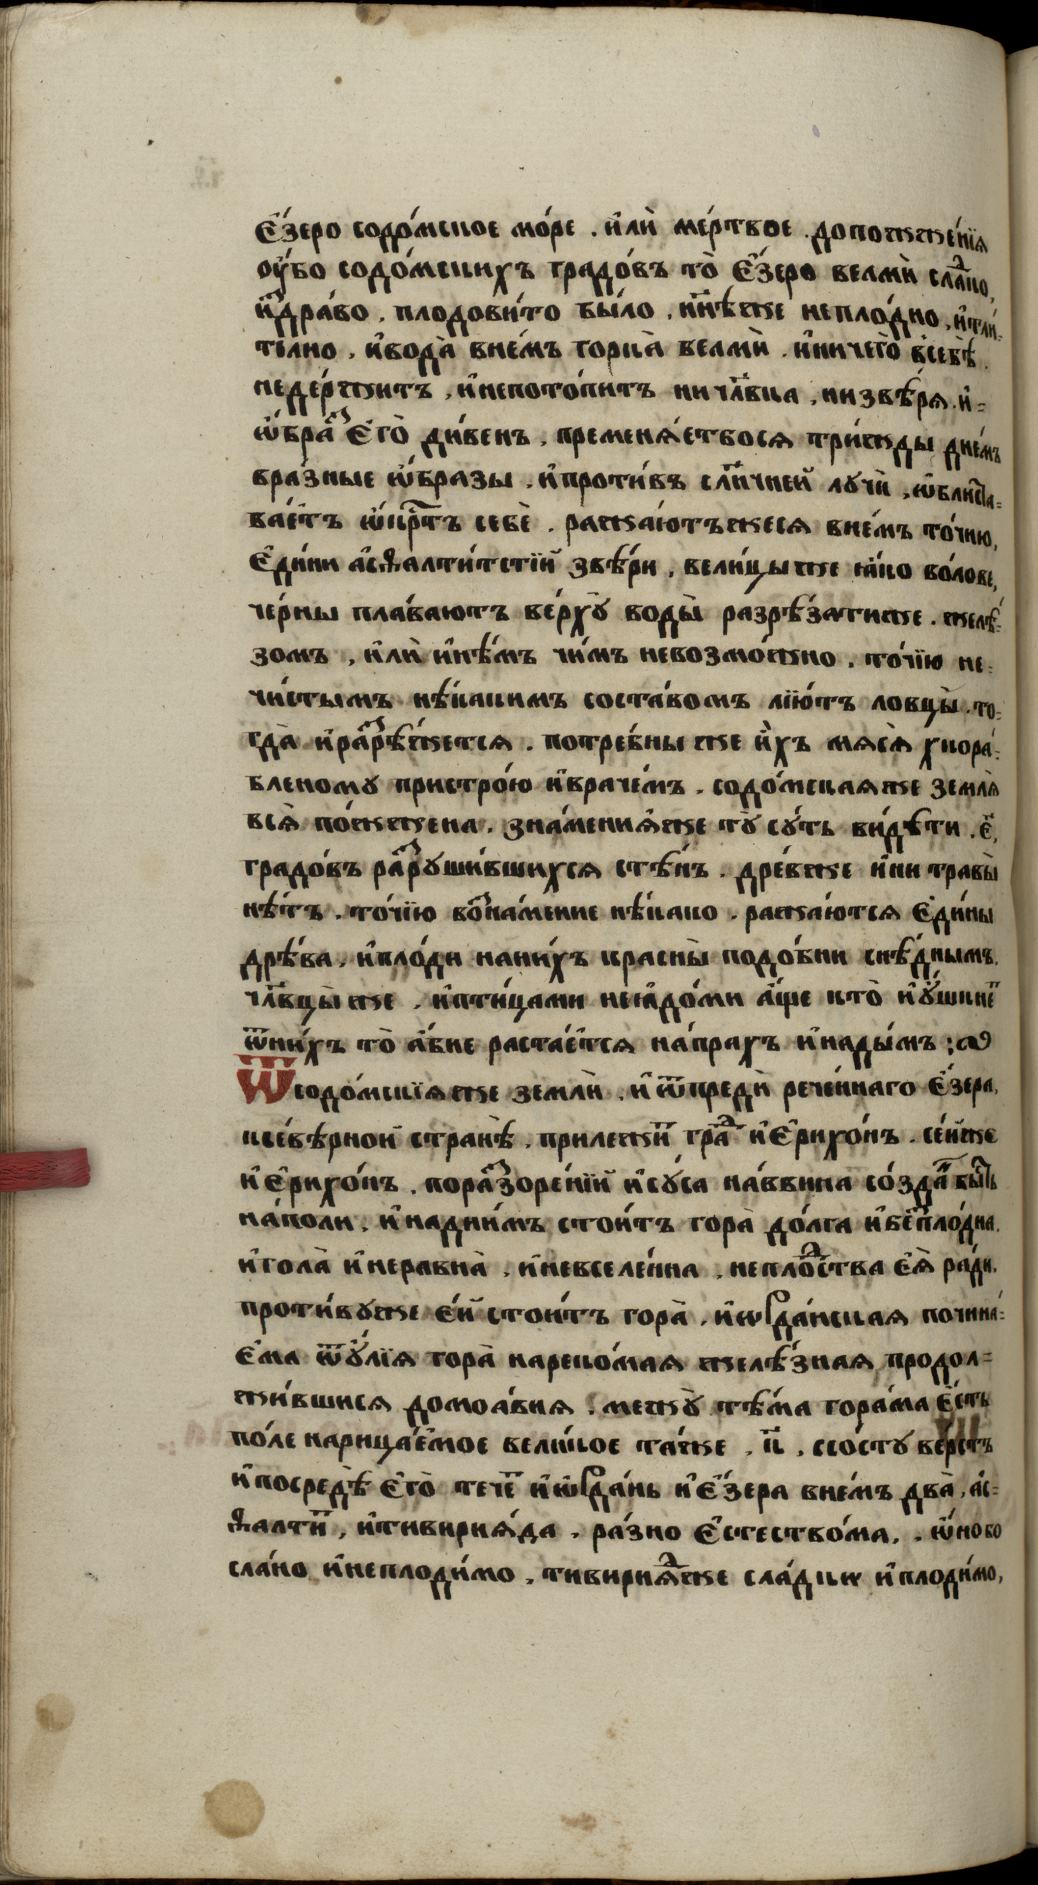 Є҆́зеро содо́мское мо́ре . и҆лѝ ме́ртвое . допожже́нїѧ
оу҆́бо содо́мскихъ градо́въ то̀ Є҆́зеро велмѝ сла́ⷣко,
и҆здра́во . плодови́то бы́ло , нн҃ѣже непло́дно , и҆тли́-
телно , и҆вода̀ вне́мъ горка̀ велмѝ . и҆ничего̀ всебѣ̀ .
неде́ржитъ , и҆непото́питъ ни чл҃вка , низвѣ́рѧ . и҆-
ѡ҆́браⷥ Є҆гѡ̀ ди́венъ , премѣнѧ́етбосѧ три́жды дне́мъ
вра́зные ѡ҆́бразы . и҆проти́въ сл҃нчней лучѝ , ѡ҆блиⷭта-
ва́етъ ѡ҆́крⷭтъ себѐ . ража́ютъжесѧ вне́мъ то́чию,
Є҆ди́ни а҆сѳалти́тстїй звѣ́ри , вели́цы же ꙗ҆́ко во́лове,
че́рны пла́ваютъ ве́рхꙋ воды̀ разрѣ́затиже . желѣ́-
зомъ , и҆лѝ и҆нѣ́мъ чи́мъ невозмо́жно . то́чїю не-
чи́стымъ нѣ́какимъ соста́вомъ лїю́тъ ловцы̀ . то-
гда̀ и҆раⷥрѣ́жетсѧ . потре́бны же и҆́хъ мѧса̀ хкора́-
бленому пристро́ю и҆врачемъ . содо́мскаѧже землѧ̀
всѧ̀ пожже́на . зна́мениѧже тꙋ̀ сꙋ́ть ви́дѣти . є҃,
градо́въ раⷥруши́вшихсѧ стѣ́нъ . дре́вже и҆ни травы̀
нѣ́тъ . то́чїю воⷥна́мение нѣ́како . ража́ютсѧ Є҆ди́ны
дрѣ́ва , и҆пло́ди нани́хъ красны̀ подо́бни снѣ́днымъ .
чл҃вцы̀ же , и҆пти́цами неꙗ҆до́ми а҆́ще кто̀ и҆ꙋ҆шкнеⷮ
ѿни́хъ то̀ а҆́бие растае́тсѧ на́прахъ и҆нады́мъ :
Ѿсодо́мскїѧже землѝ . и҆ ѿпредѝ рече́ннаго Є҆́зера,
ксѣ́вѣрной странѣ̀ . прилежиⷮ граⷣ и҆Є҆рихо́нъ . се́йже
и҆Є҆рихо́нъ . пораⷥзоре́нїй и҆сꙋ́са на́ввина со́зⷣа бы́ⷭть
на́поли , и҆надни́мъ стои́тъ гора̀ до́лга и҆беⷥпло́дна .
и҆гола̀ и҆неравна̀ , и҆невселе́нна , непло́ⷣства Є҆ѧ̀ ра́ди.
проти́вуже Є҆́й стои́тъ гора̀ , и҆ѡрда́нскаѧ почина́-
Є҆ма ѿꙋ҆́лїѧ гора̀ нареко́маѧ желѣ́знаѧ, продол-
жи́вшисѧ домоа́виѧ . межꙋ̀ тѣ́ма гора́ма Є҆́сть
по́ле нарица́емое вели́кое та́кже . к҃ . сво́сту верстъ
и҆посредѣ̀ Є҆гѡ̀ течеⷮ и҆ѡрда́нь и҆Є҆́зера вне́мъ два̀ , а҆с-
ѳалтиⷮ , и҆тивириѧ́да . ра́зно Є҆стество́ма . . ѡ҆́но бо
сла́но и҆неплоди́мо , тивириѧⷣже сла́дкѡ и҆плоди́мо,